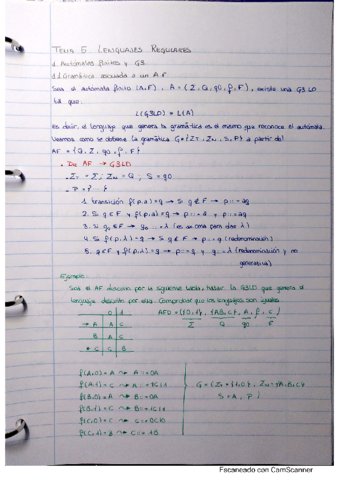 TEMA 5. LENGUAJES REGULARES
1. Autómatas finitos y G3.
1.1. Gramática asociada a un A.F
Sea el autómata finito (A.F), A = (Σ, Q, q0, f, F), existe una G3 LD
tal que:
L(G3LD) = L(A)
Es decir, el lenguaje que genera la gramática es el mismo que reconoce el autómata.
Veamos como se obtiene la gramática G = {ΣT, ΣN, S, P} a partir del
AF = {Q, Σ, q0, f, F}
• De AF → G3LD
• ΣT = Σ, ΣN = Q, S = q0
• P = { }
1. transición f(p,a) = q → Si q ∉ F → p ::= aq
2. Si q ∈ F y f(p,a) = q → p ::= a y p ::= aq
3. Si q0 ∈ F → q0 ::= λ (es axioma para dar λ)
4. Si f(p,λ) = q → Si q ∉ F → p ::= q (redenominación)
5. q ∈ F y f(p,λ) = q → p ::= q y q ::= λ (redenominación y no
generativa)
Ejemplo:
Sea el AF descrito por la siguiente tabla, hallar la G3LD que genera el
lenguaje descrito por ella. Comprobar que los lenguajes son iguales
0 1
→ A A C
B A C
* C C B
AFD = ({0,1}, {A,B,C}, A, f, C)
Σ Q q0 F
f(A,0) = A → A ::= 0A
f(A,1) = C → A ::= 1C|1
f(B,0) = A → B ::= 0A
f(B,1) = C → B ::= 1C|1
f(C,0) = C → C ::= 0C|0
f(C,1) = B → C ::= 1B
G = (ΣT = {1,0}, ΣN = {A,B,C}
S = A, P)
Escaneado con CamScanner